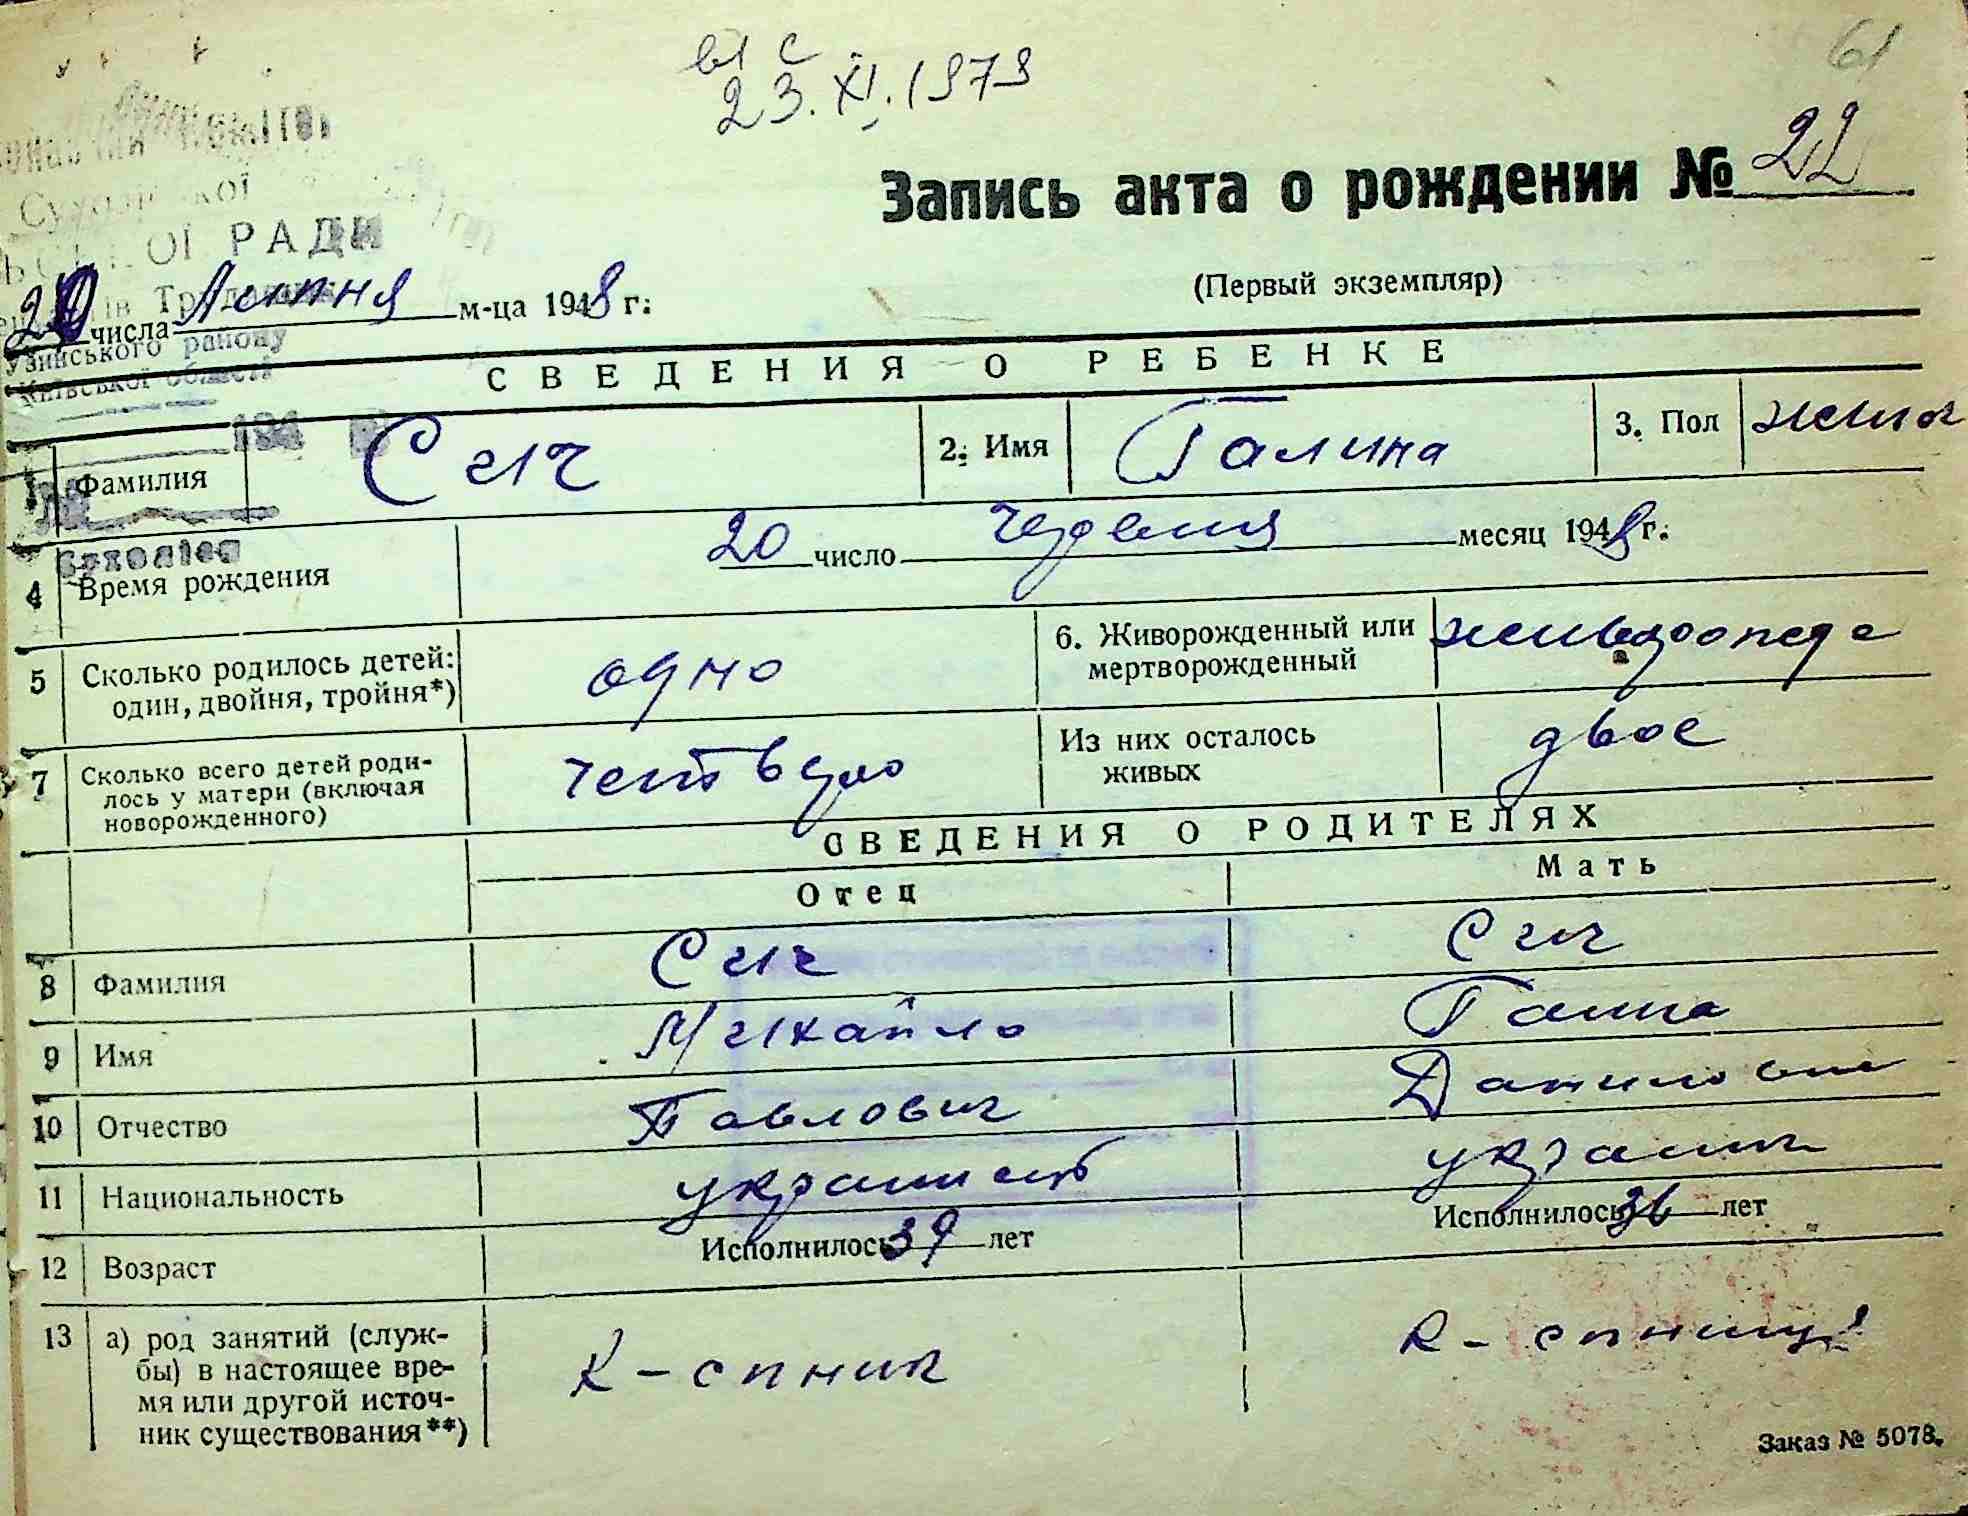 61
в/с
23.XI.1979
Запись акта о рождении № 22
РАДИ
(Первый экземпляр)
20 числа Липня м-ца 1948 г.
Узинського району
Київської області
СВЕДЕНИЯ О РЕБЕНКЕ
194
1 Фамилия Сич 2. Имя Галина 3. Пол жіноч
4 Время рождения 20 число червня месяц 1948 г.
5 Сколько родилось детей: один, двойня, тройня*) одно 6. Живорожденный или мертворожденный
7 Сколько всего детей родилось у матери (включая новорожденного) четверо Из них осталось живых двое
СВЕДЕНИЯ О РОДИТЕЛЯХ
Отец Мать
8 Фамилия Сич Сич
9 Имя Михайло Ганна
10 Отчество Павлович Данилови
11 Национальность українець україн
12 Возраст Исполнилось 39 лет Исполнилось 36 лет
13 а) род занятий (службы) в настоящее время или другой источник существования**) К-спник К-спниця
Заказ № 5078.